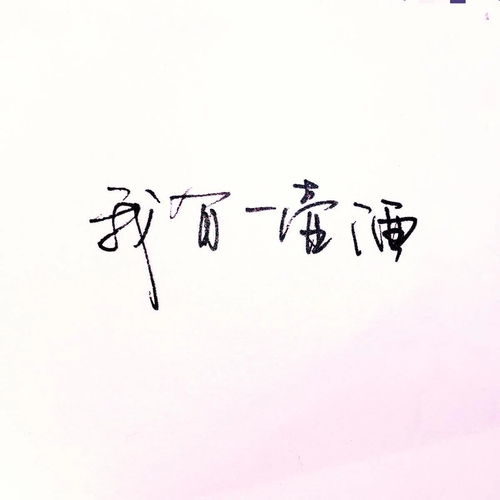 我有一壶酒